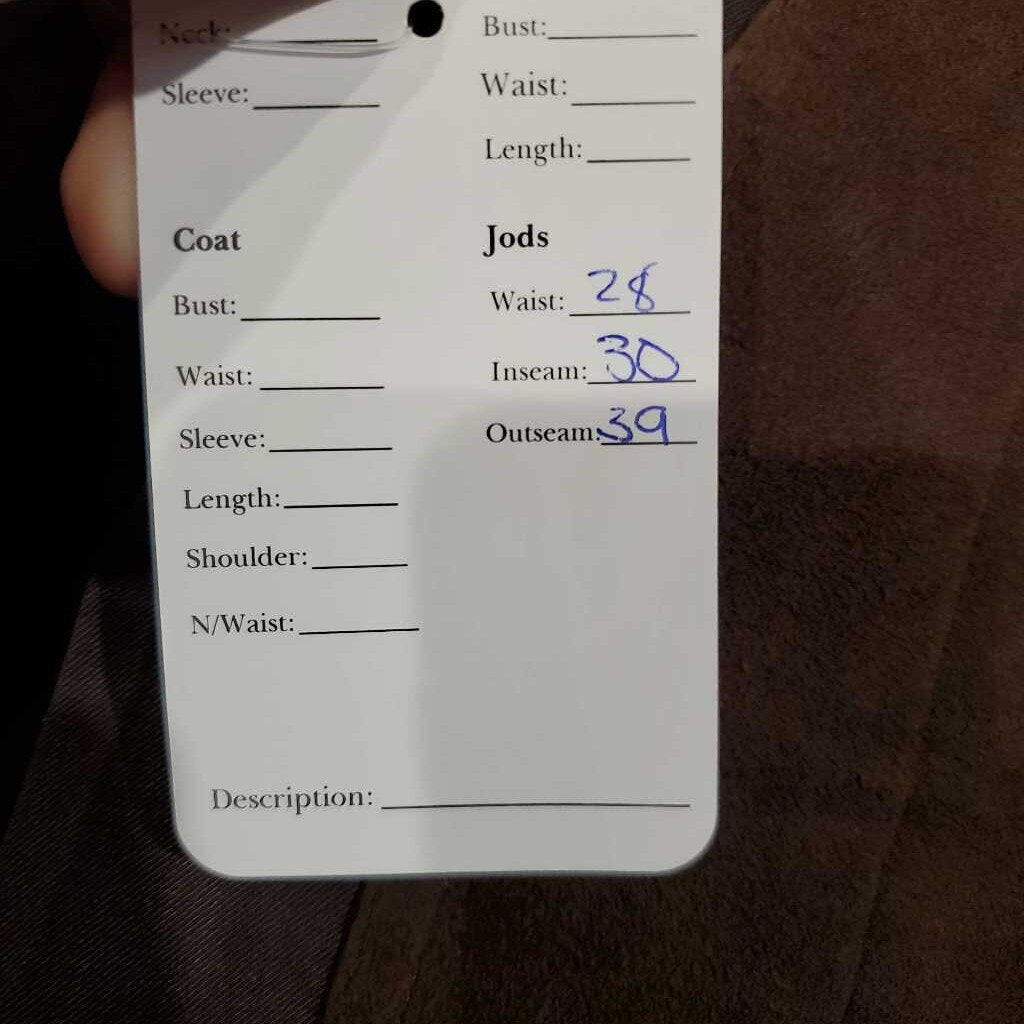 Neck:
Sleeve:
Bust:
Waist:
Length:
Coat
Bust:
Waist:
Sleeve:
Length:
Shoulder:
N/Waist:
Jods
Waist: 28
Inseam: 30
Outseam: 39
Description: